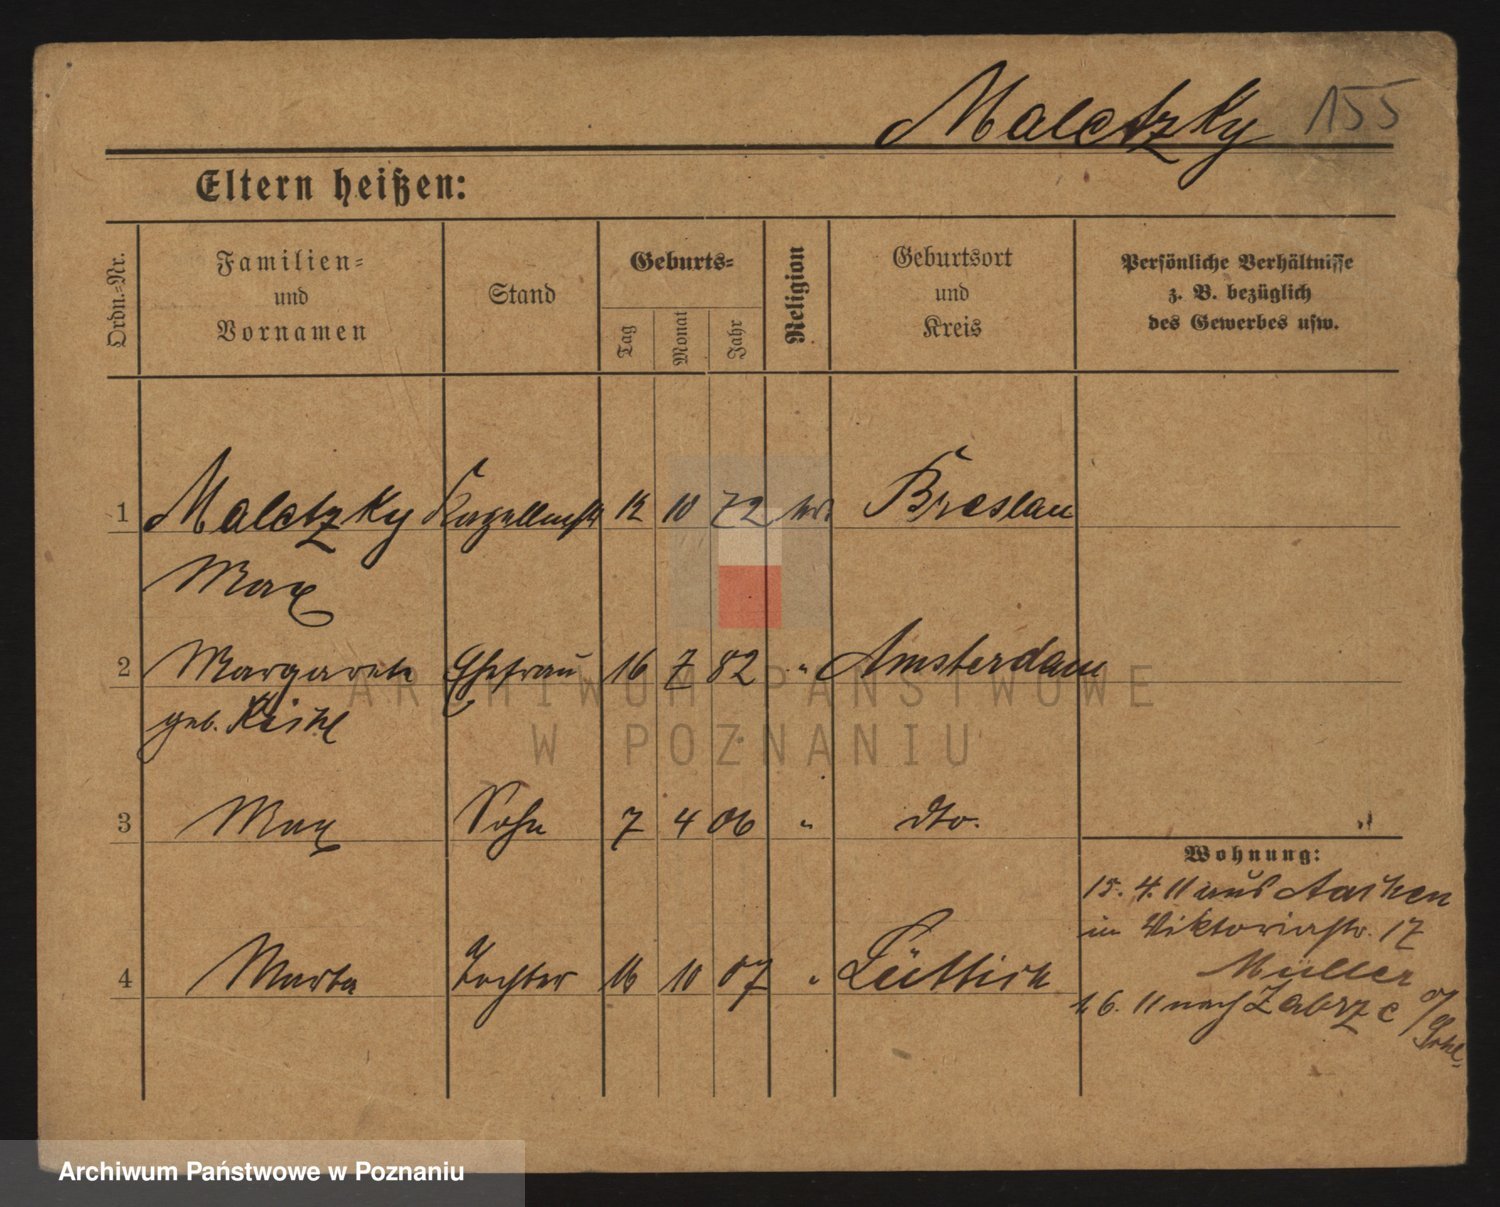 Maletzky 155
Eltern heißen:
Ordn.-Nr.
Familien-
und
Vornamen
Stand
Geburts-
Tag
Monat
Jahr
Religion
Geburtsort
und
Kreis
Persönliche Verhältnisse
z. B. bezüglich
des Gewerbes usw.
1 Maletzky Kapellmstr 12 10 72 Breslau
Max
2 Margarete Ehefrau 16 7 82 " Amsterdam
geb.
3 Max Sohn 7 4 06 " dto.
Wohnung:
15. 4. 11 aus Aachen
in Viktoriastr. 17
Müller
4 Marta Tochter 16 10 07 " Lüttich
1. 6. 11 nach Zabrze O/
ARCHIWUM PAŃSTWOWE
W POZNANIU
Archiwum Państwowe w Poznaniu